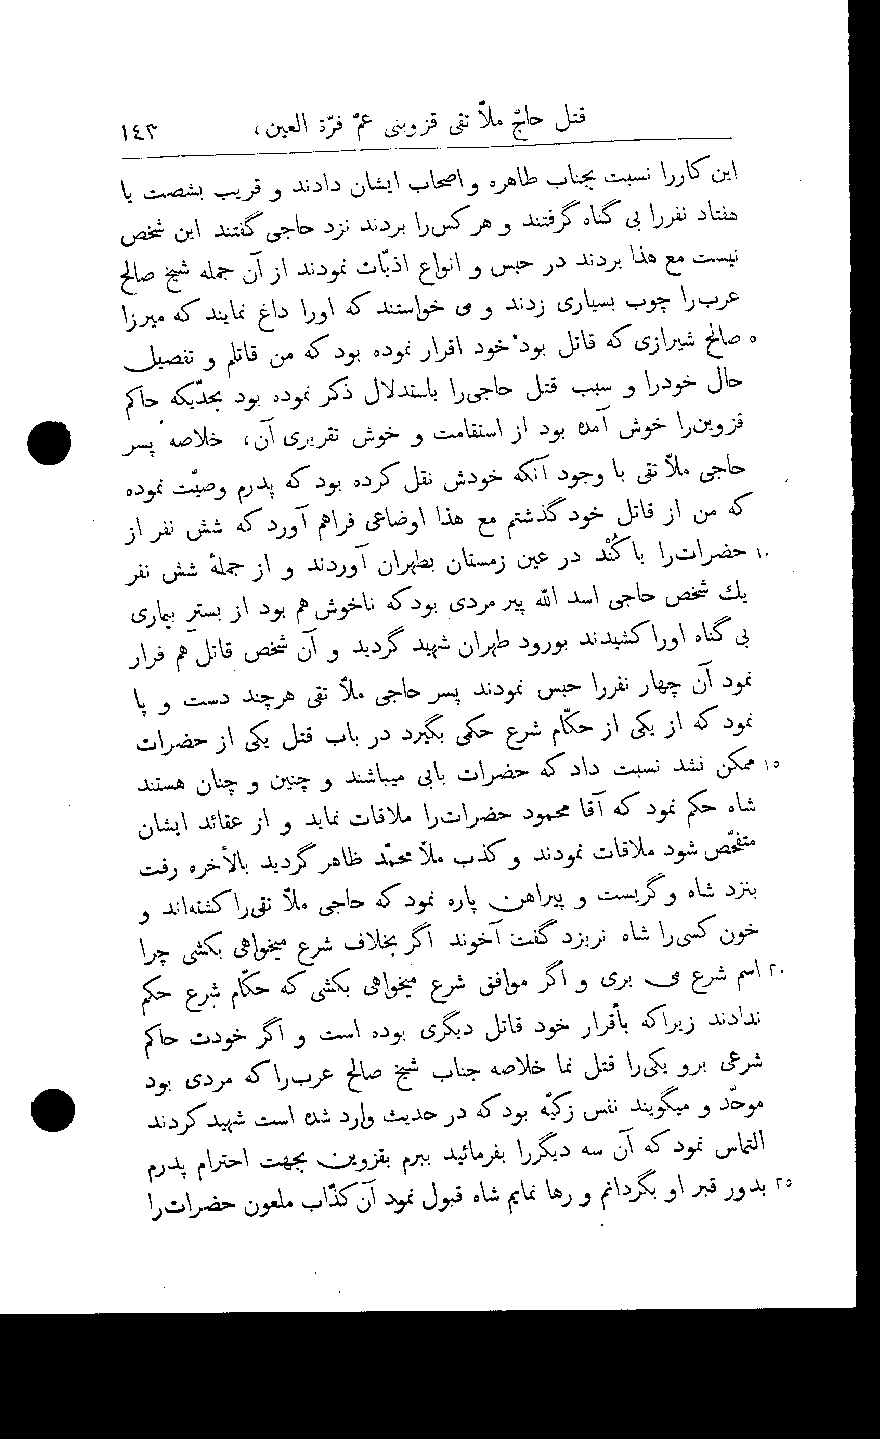 قتل حاجّ ملاّ تقی قزوینی عمّ قرّة العین، ١٤٣
این کاررا نسبت بجناب طاهره و اصحاب ایشان دادند و قریب بشصت یا
هفتاد نفررا بی گناه گرفتند و هر کس‌را بردند نزد حاجی گفتند این شخص
نیست مع هذا بردند در حبس و انواع اذیّات نمودند از آن جمله شیخ صالح
عرب‌را چوب بسیاری زدند و می خواستند که اورا داغ نمایند که میرزا
٥ صالح شیرازی که قاتل بود خود اقرار نموده بود که من قاتلم و تفصیل
حال خودرا و سبب قتل حاجی‌را باستدلال ذکر نموده بود بحدّیکه حاکم
قزوین‌را خوش آمده بود از استقامت و خوش تقریری آن، خلاصه پسر
حاجی ملاّ تقی با وجود آنکه خودش نقل کرده بود که پدرم وصیّت نموده
که من از قاتل خود گذشتم مع هذا اوضاعی فراهم آورد که شش نفر از
١٠ حضرات‌را با کُنْد در عین زمستان بطهران آوردند و از جملهٔ شش نفر
یك شخص حاجی اسد الله پیر مردی بود که ناخوش هم بود از بسترِ بیماری
بی گناه اورا کشیدند بورود طهران شهید گردید و آن شخص قاتل هم فرار
نمود آن چهار نفررا حبس نمودند پسر حاجی ملاّ تقی هرچند دست و پا
نمود که از یکی از حکّام شرع حکمی بگیرد در باب قتل یکی از حضرات
١٥ ممکن نشد نسبت داد که حضرات بابی میباشند و چنین و چنان هستند
شاه حکم نمود که آقا محمود حضرات‌را ملاقات نماید و از عقائد ایشان
متفحّص شود ملاقات نمودند و کذب ملاّ محمّد ظاهر گردید بالأخره رفت
بنزد شاه و گریست و پیراهن پاره نمود که حاجی ملاّ تقی‌را کشته‌اند و
خون کسی‌را شاه نریزد گفت آخوند اگر بخلاف شرع میخواهی بکشی چرا
٢٠ اسم شرع می بری و اگر موافق شرع میخواهی بکشی که حکّام شرع حکم
ندادند زیرا که بأقرار خود قاتل دیگری بوده است و اگر خودت حاکم
شرعی برو یکی‌را قتل نما خلاصه جناب شیخ صالح عرب‌را که مردی بود
موحّد و میگویند نفس زکیّه بود که در حدیث وارد شده است شهید کردند
التماس نمود که آن سه دیگررا بفرمائید ببرم بقزوین بجهت احترام پدرم
٢٥ بدور قبر او بگردانم و رها نمایم شاه قبول نمود آن کذّاب ملعون حضرات‌را